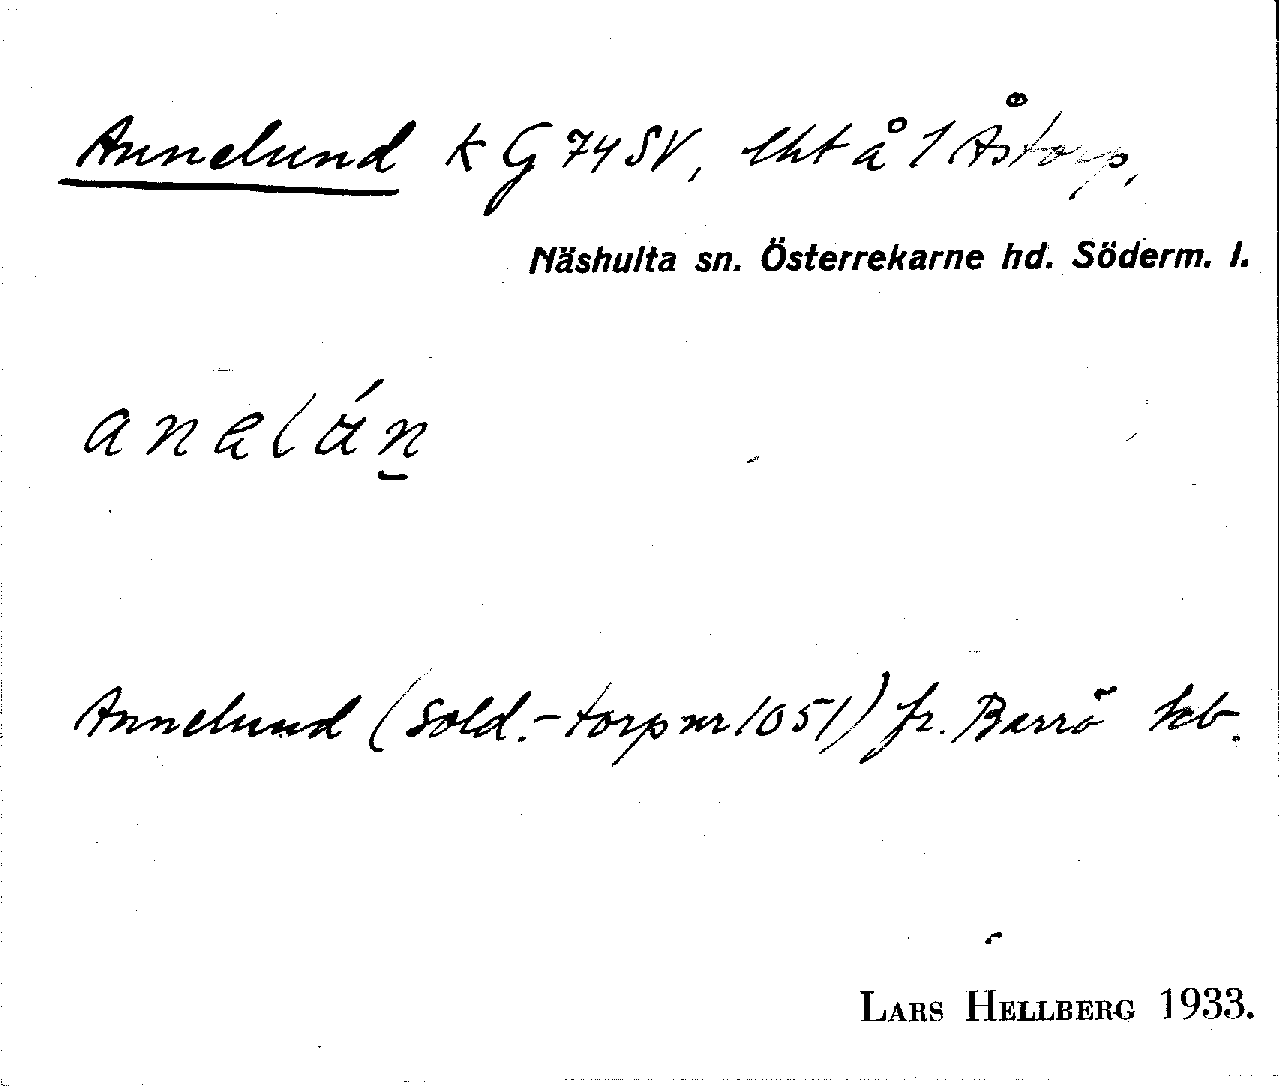 Annelund k G 74 SV, lht å 1 Åstorp,
Näshulta sn. Österrekarne hd. Söderm. l.
analán
Annelund (Sold.-torp nr 1051) fr. Barrö kb.
LARS HELLBERG 1933.